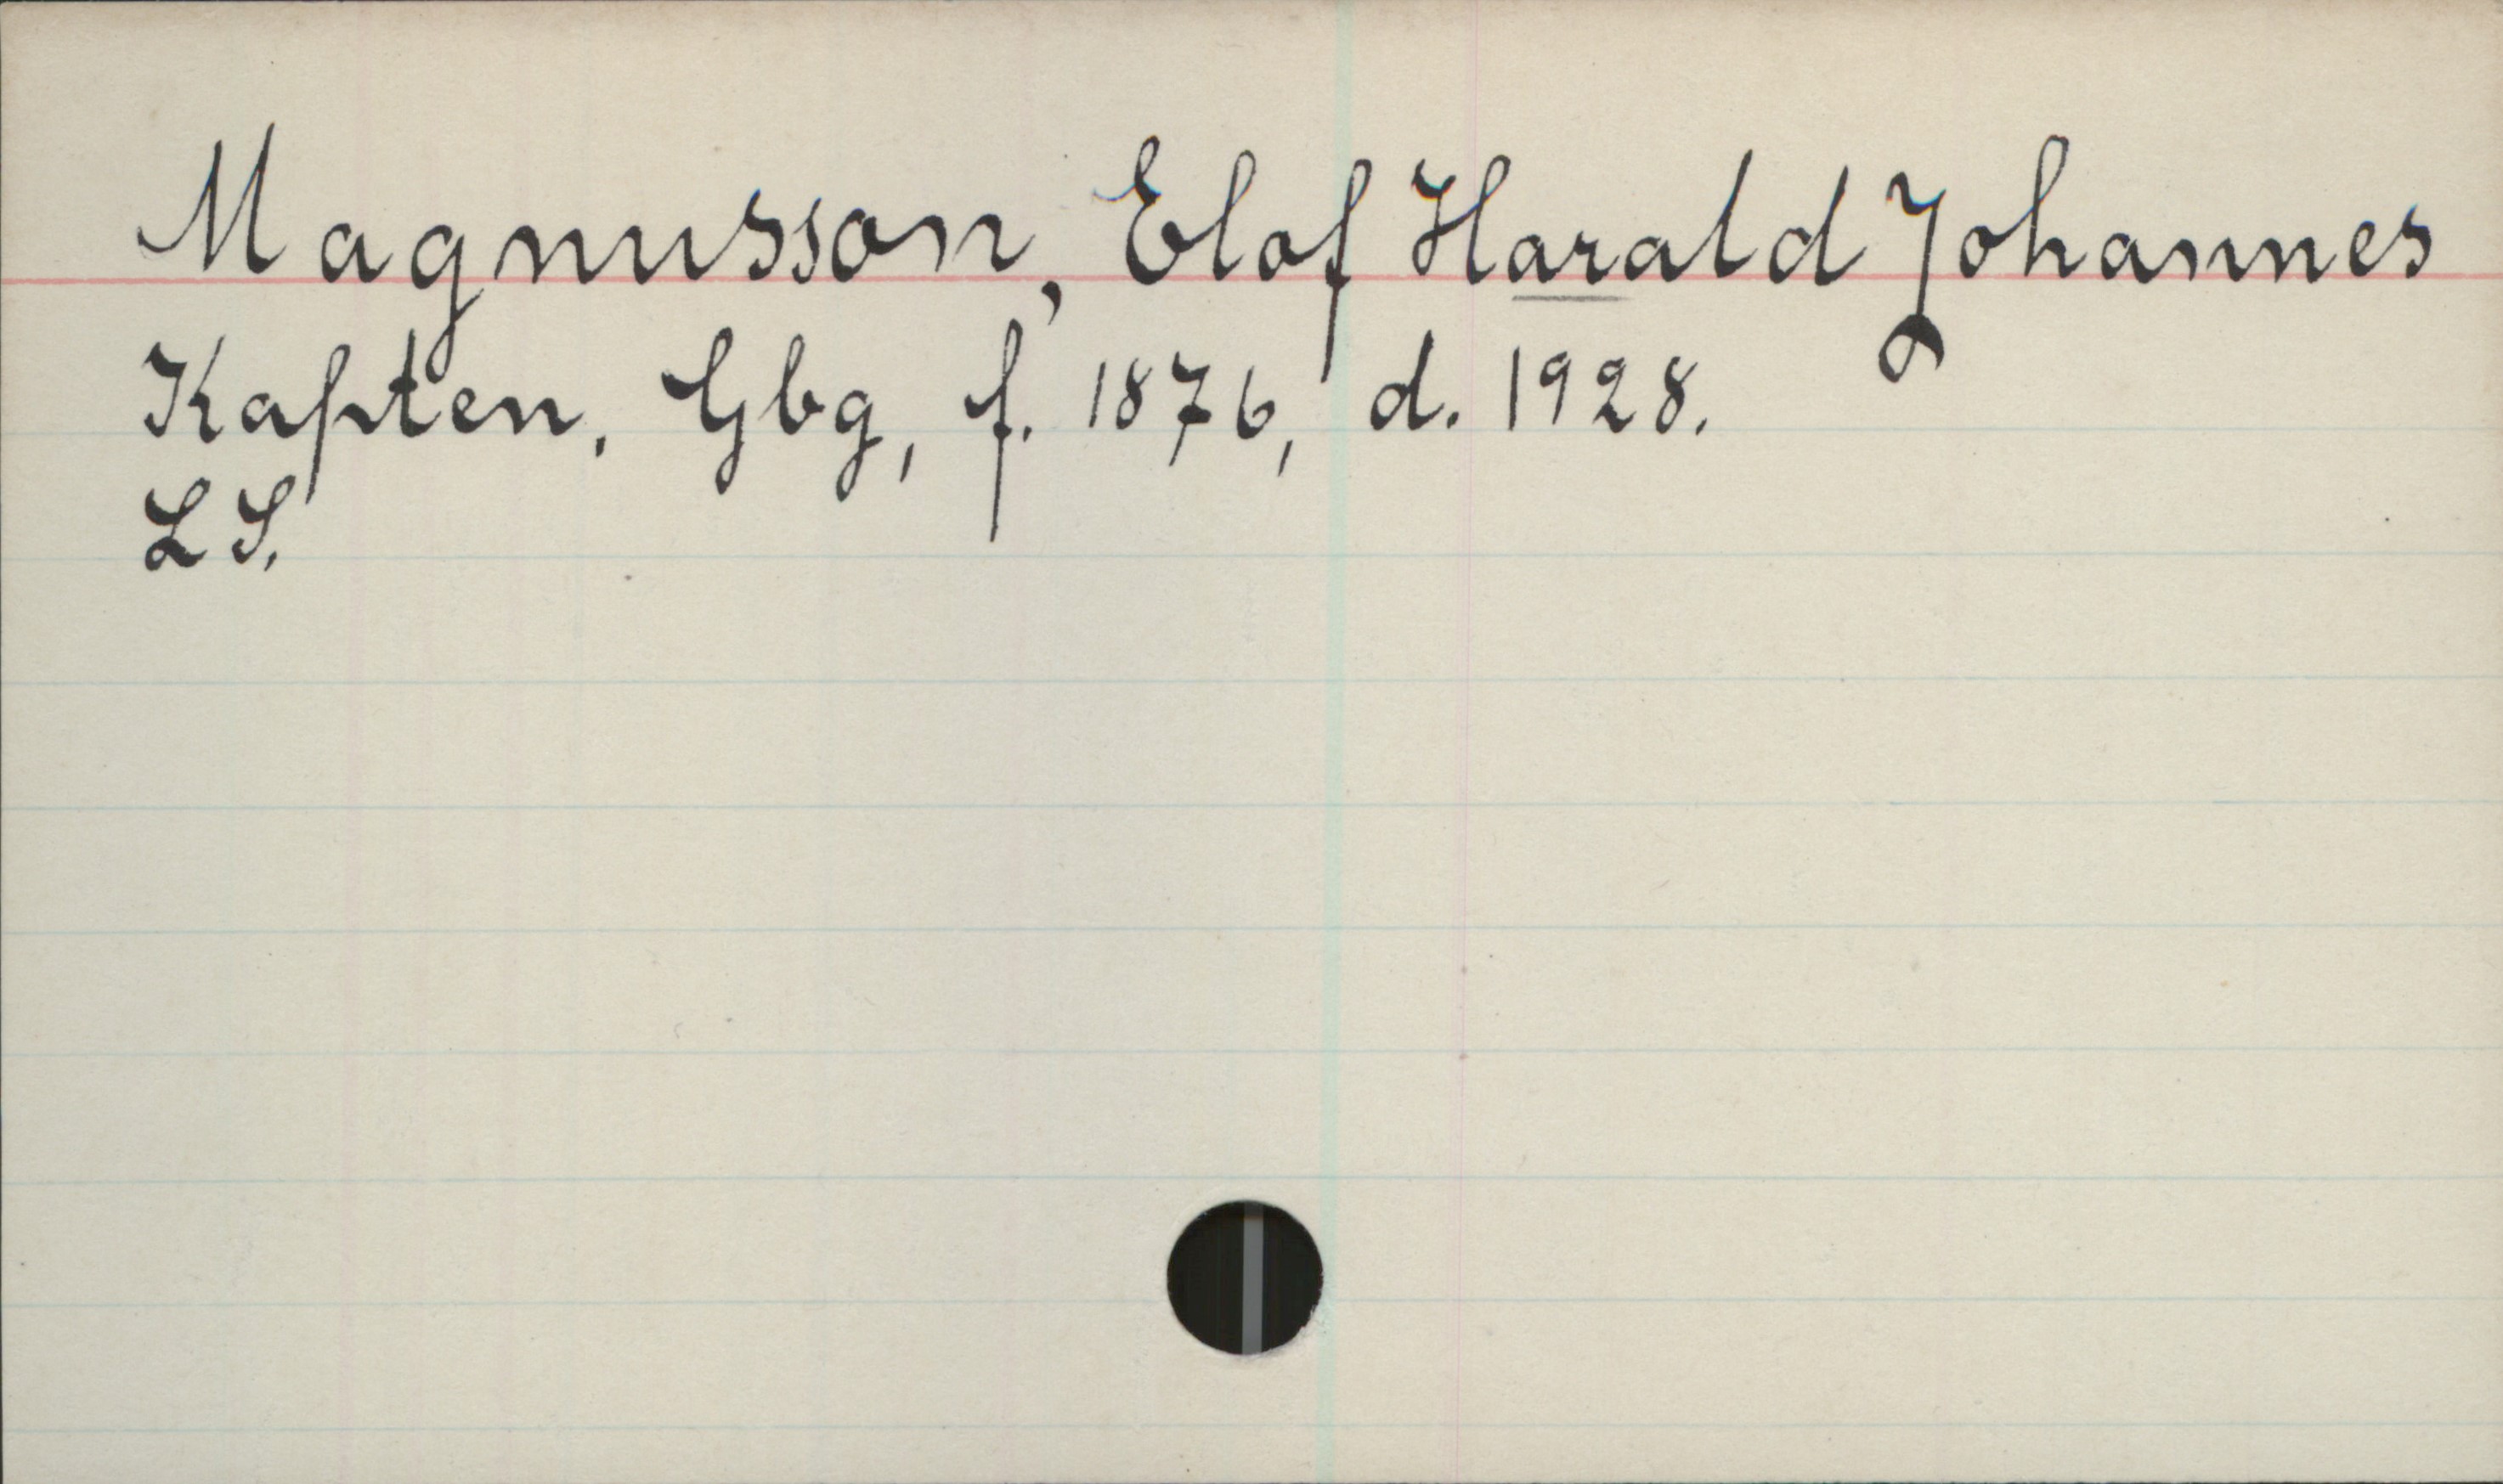 Magnusson, Elof Harald Johannes
Kapten, Gbg, f. 1876, d. 1928.
LS.